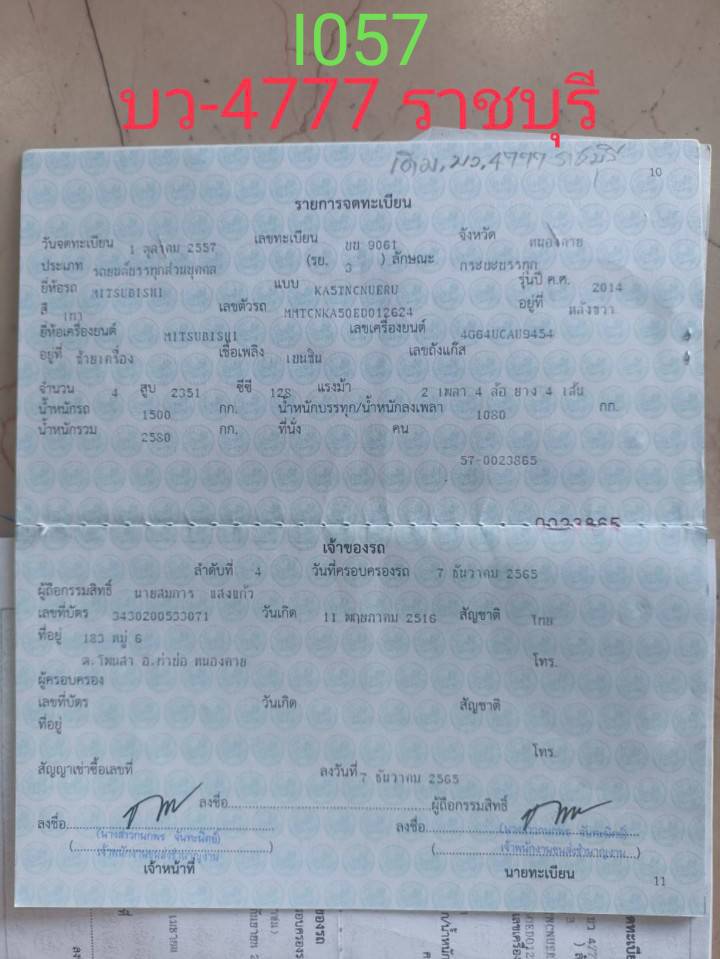 I057
บว-4777 ราชบุรี
เดิม, บว, 4777 ราชบุรี
10
รายการจดทะเบียน
วันจดทะเบียน 1 ตุลาคม 2557 เลขทะเบียน ขย 9061 จังหวัด หนองคาย
ประเภท รถยนต์บรรทุกส่วนบุคคล (รย. 3 ) ลักษณะ กระบะบรรทุก
ยี่ห้อรถ MITSUBISHI แบบ KA5TNCNUERU รุ่นปี ค.ศ. 2014
สี เทา เลขตัวรถ MMTCNKA50ED012624 อยู่ที่ หลังขวา
ยี่ห้อเครื่องยนต์ MITSUBISHI เลขเครื่องยนต์ 4G64UCAU9454
อยู่ที่ ซ้ายเครื่อง เชื้อเพลิง เบนซิน เลขถังแก๊ส
จำนวน 4 สูบ 2351 ซีซี 128 แรงม้า 2 เพลา 4 ล้อ ยาง 4 เส้น
น้ำหนักรถ 1500 กก. น้ำหนักบรรทุก/น้ำหนักลงเพลา 1080 กก.
น้ำหนักรวม 2580 กก. ที่นั่ง คน
57-0023865
0023865
เจ้าของรถ
ลำดับที่ 4 วันที่ครอบครองรถ 7 ธันวาคม 2565
ผู้ถือกรรมสิทธิ์ นายสมภาร แสงแก้ว
เลขที่บัตร 3430200533071 วันเกิด 11 พฤษภาคม 2516 สัญชาติ ไทย
ที่อยู่ 183 หมู่ 6
ต.โพนสา อ.ท่าบ่อ หนองคาย โทร.
ผู้ครอบครอง
เลขที่บัตร วันเกิด สัญชาติ
ที่อยู่
โทร.
สัญญาเช่าซื้อเลขที่ ลงวันที่ 7 ธันวาคม 2565
ลงชื่อ ผู้ถือกรรมสิทธิ์
ลงชื่อ ลงชื่อ
เจ้าพนักงานขนส่งชำนาญงาน เจ้าพนักงานขนส่งชำนาญงาน
เจ้าหน้าที่ นายทะเบียน
11